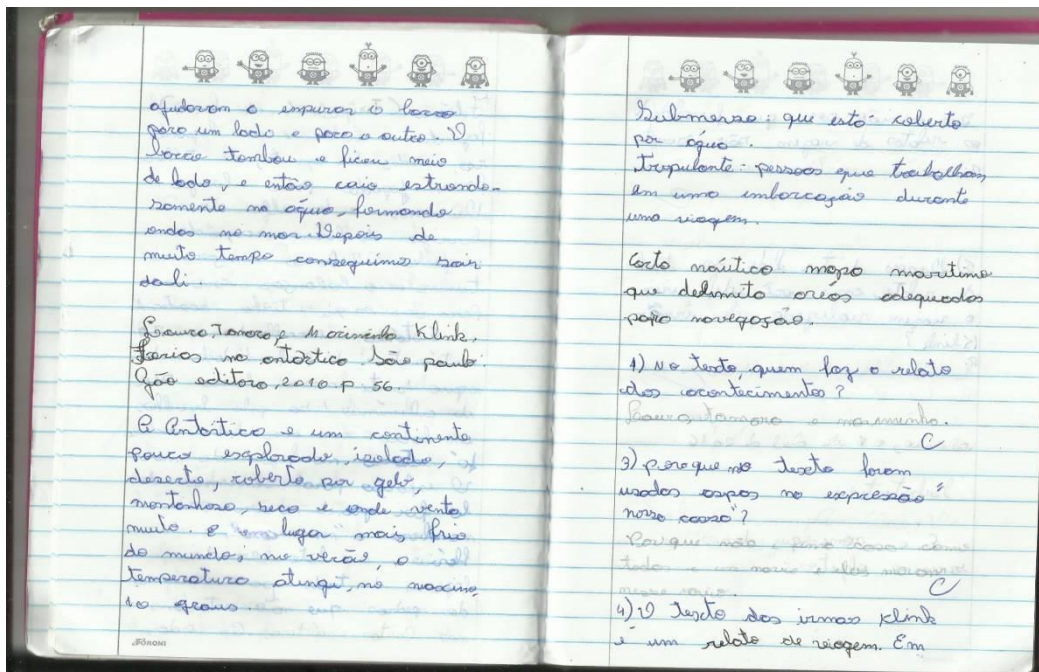 ajudaram o empurar o barco
para um lado e para o outro. O
barco tombou e ficou meio
de lado, e então caiu estrondo-
samente na água, formando
ondas no mar. Depois de
muito tempo conseguimos sair
dali.
Laura, Tamara, e Marininha Klink.
Férias na antártica. São paulo:
Grão editora, 2010. p 56.
A Antártica e um continente
pouco explorado, isolado,
deserto, coberto por gelo,
montanhoso, seco e onde venta
muito. E lugar mais frio
do mundo; no verão, a
temperatura atingi, no maximo,
10 graus.
FORONI
Submerso: que está coberto
por água.
Tripulante: pessoas que trabalham
em uma embarcação durante
uma viagem.
Carta naútica mapa maritimo
que delimita áreas adequadas
para navegação.
1) No texto, quem faz o relato
dos acontecimentos?
Laura, tamara e marininha.
C
3) poreque no texto foram
usadas aspas na expressão "
nossa casa"?
Porque não casa como
todas e um navio e elas
nesse navio.
C
4) O texto das irmas Klink
é um relato de viagem. Em